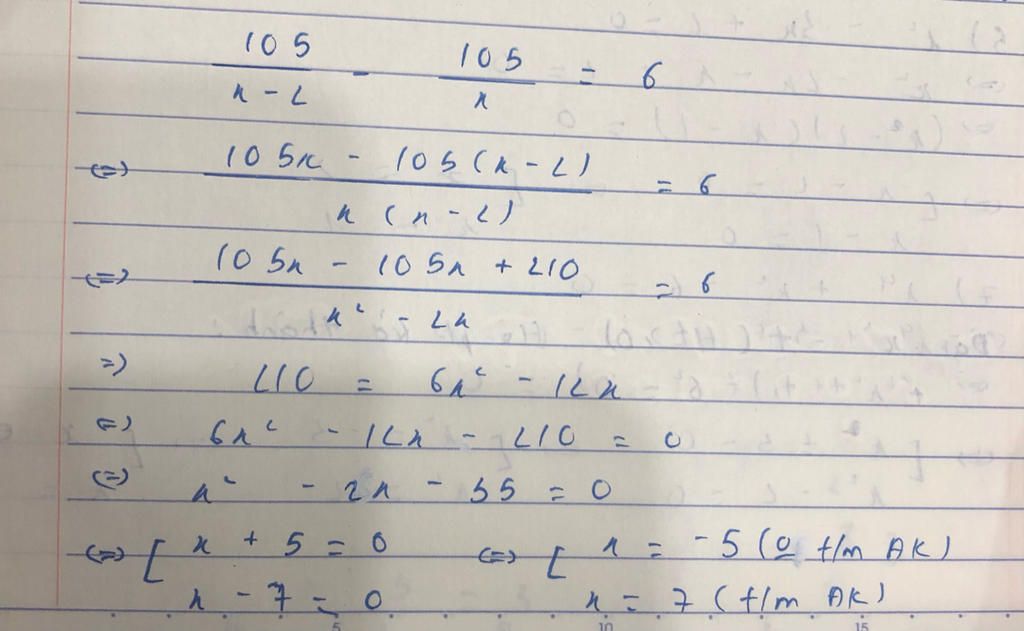 105/(x-2) - 105/x = 6
(=) (105x - 105(x-2))/(x(x-2)) = 6
(=) (105x - 105x + 210)/(x² - 2x) = 6
=) 210 = 6x² - 12x
=) 6x² - 12x - 210 = 0
(=) x² - 2x - 35 = 0
(=) [ x + 5 = 0 (=) [ x = -5 (0 t/m ĐK)
x - 7 = 0 x = 7 (t/m ĐK)
5 10 15